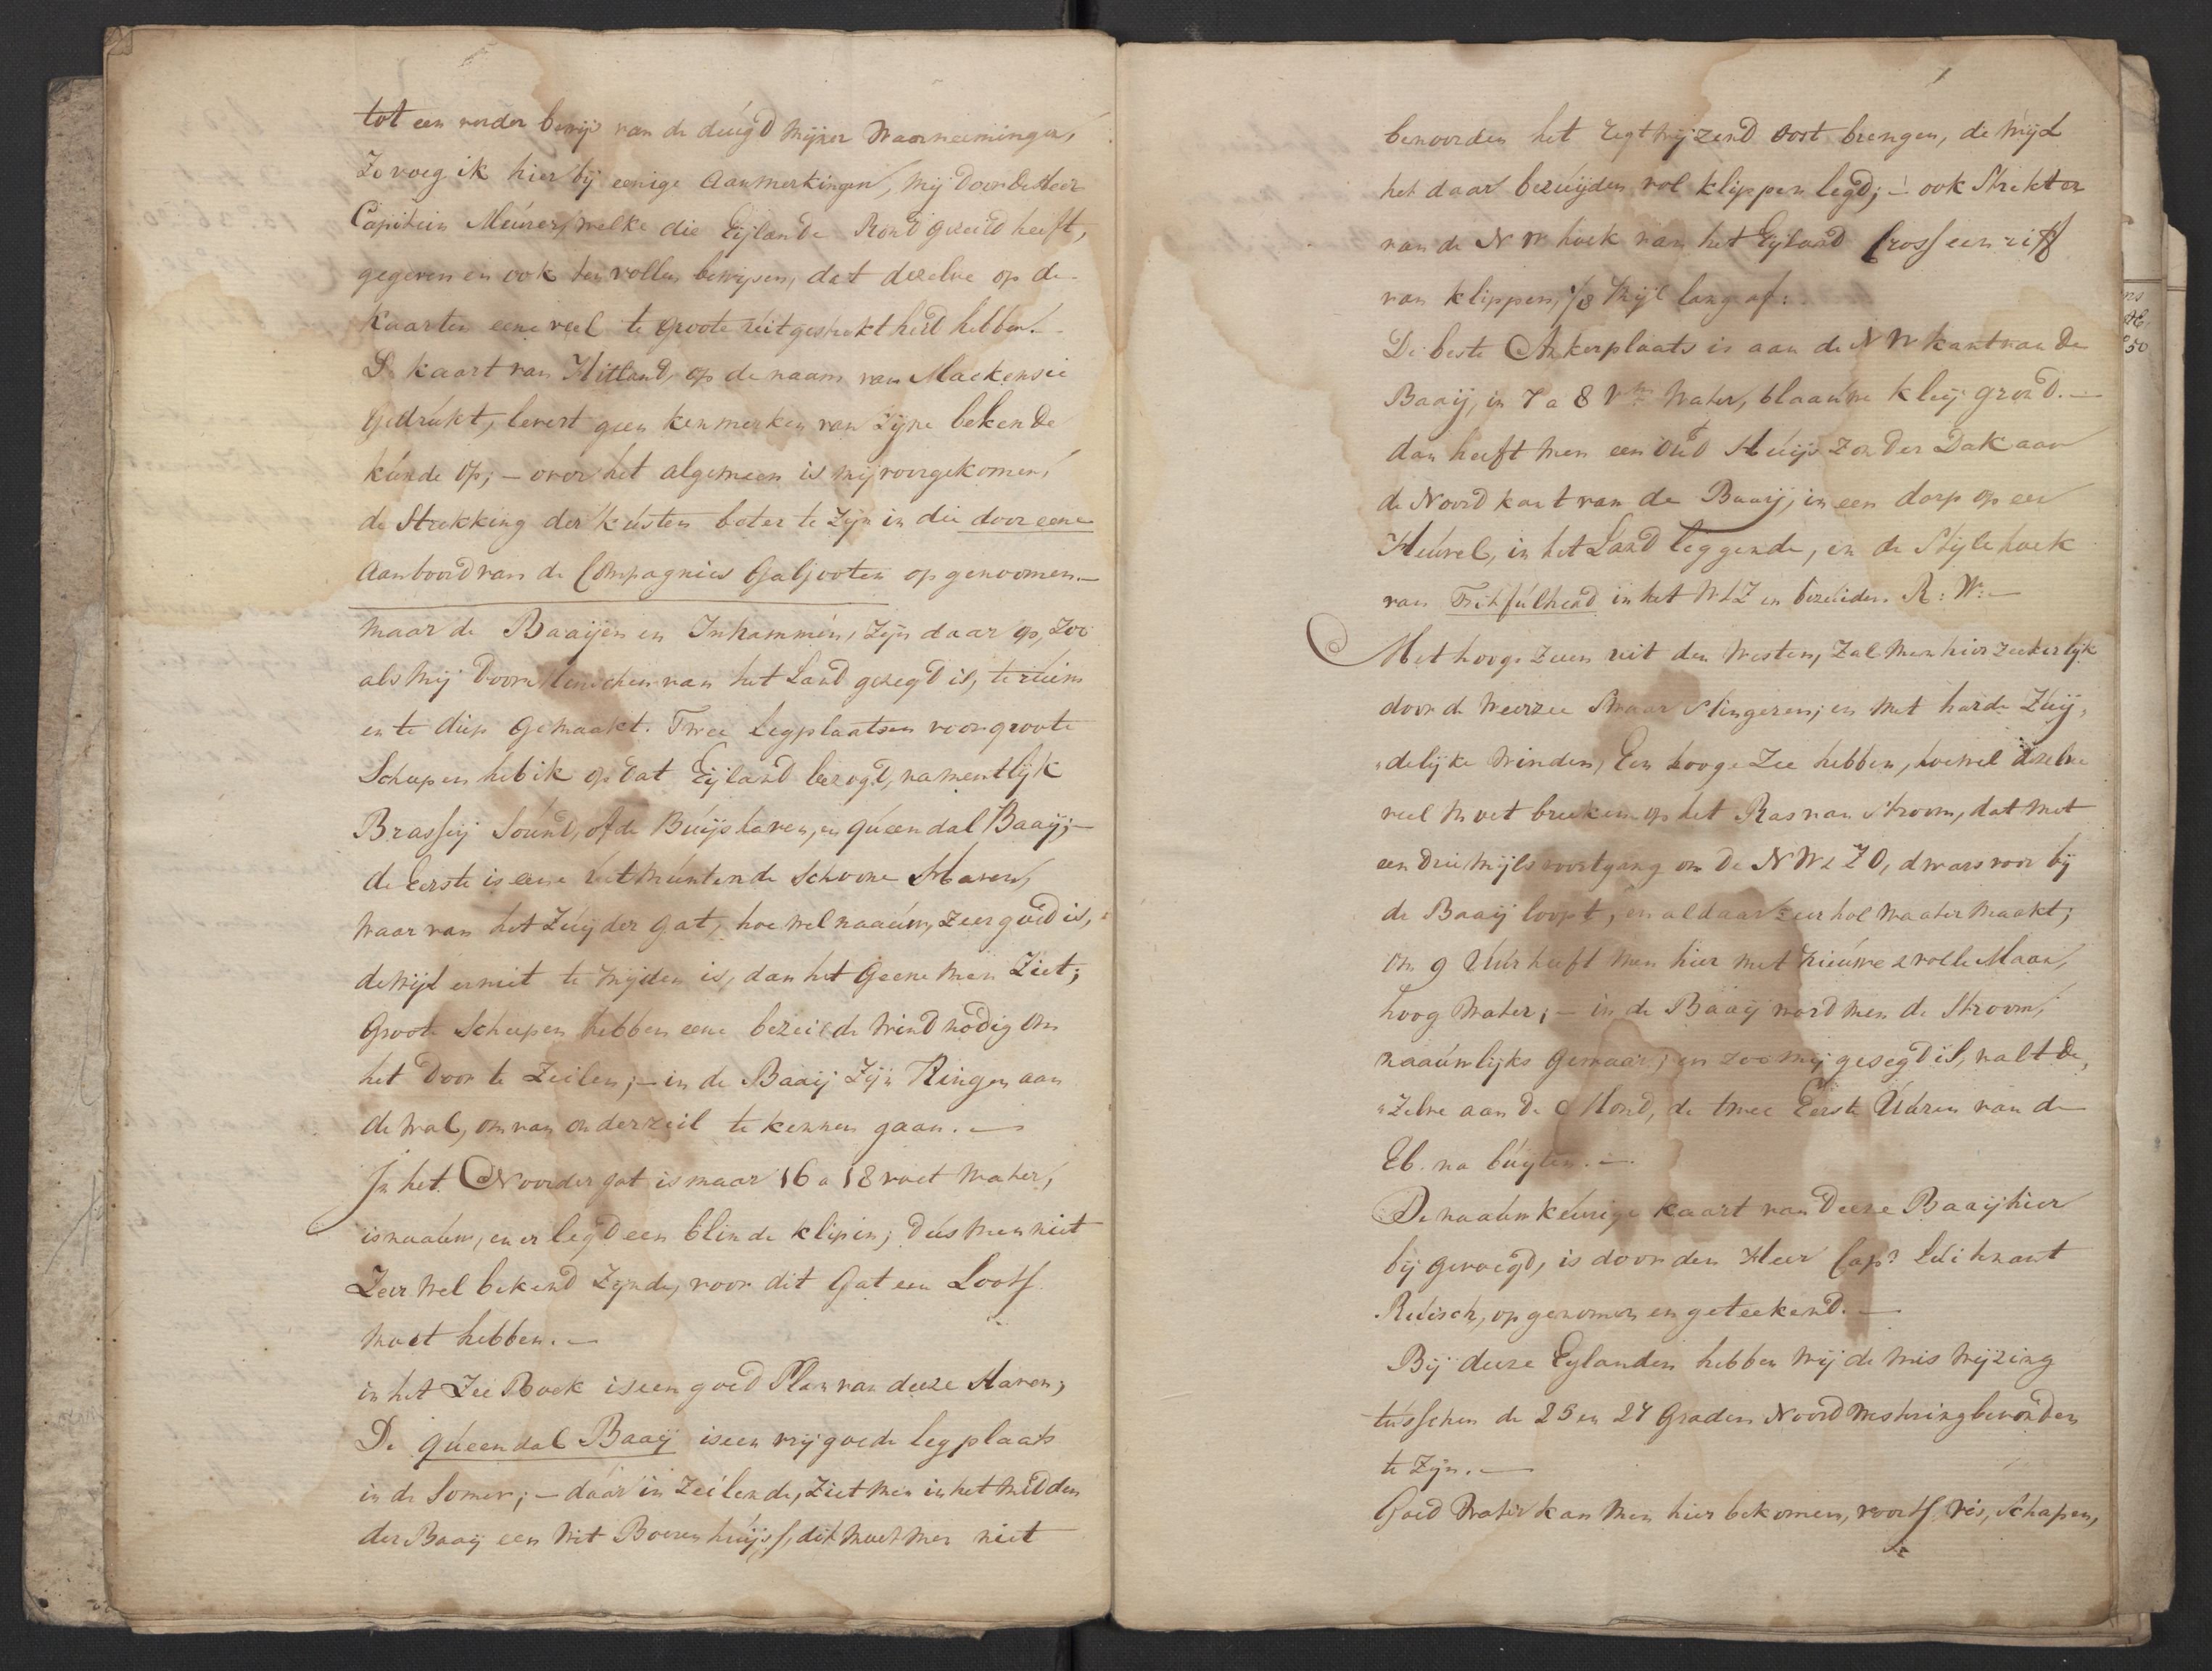 tot een verder bewijs van de deúgd mijner waarneemingen,
Zo voeg ik hier bij eenige aanmerkingen, mij door de Heer
Capitein Meúrer, welke die Eijlande Rond gezeild heeft,
gegeven en ook ten vollen bewijsen, dat dezelve op de
kaarten eene veel te groote uitgestrektheid hebben. –
De kaart van Hitland, op de naam van Mackensie
gedrúkt, levert geen kenmerken van zijne bekende
kúnde op; – over het algemeen is mij voorgekomen,
de Strekking der kústen beter te zijn in die door eene
aanboord van de Compagnies Galjooten opgenoomen. –
maar de Baaijen en Inkammen, zijn daar op, zoo
als mij door Menschen van het Land gezegd is, te rúim
en te diep gemaakt. Twee Legplaatsen voor groote
Scheepen heb ik op dat Eijland bezogt, namentlijk
Brassey Sound, of de Búijs haven, en qúeendal Baaij; –
de Eerste is eene uitmúntende schoone Haven,
waar van het Zúijder gat, hoewel naaúw, zeer goed is,
dewijl er niet te mijden is, dan het geene men Ziet;
Groote Scheepen hebben eene bezeilde wind nodig om
het door te Zeilen; – in de Baaij Zijn Ringen aan
de wal, om van onderzeil te kennen gaan. –
In het Noorder gat is maar 16 a 18 voet water,
is naaúw, en er legd een blinde klip in; dús men niet
Zeer wel bekend Zijnde, voor dit Gat een Loots
moet hebben. –
in het Zee Boek is een goed Plan van deeze Haven;
De qúeendal Baaij is een vrij goede legplaats
in de Somer; – daar in Zeilende, Ziet men in het midden
der Baaij een wit Boeren húijs, dit moet men niet
benoorden het regtwijzend oost brengen, de wijl
het daar bezúijden vol klippen legd; – ook Strekt er
van de N W hoek van het Eijland Cross een riff
van klippen, 1/8 Mijl lang af:
De beste Ankerplaats is aan de N W kant van de
Baaij, in 7 a 8 Vm water, blaaúwe kleij grond. –
dan heeft men een oúd Húijs zonder Dak aan
de Noord kant van de Baaij, in een dorp op een
Heúvel, in het Land leggende, en de Stijle hoek
van Fitfúlhead in het WtZ en bezúiden R: W: –
Met hooge Zeeen uit den Westen, Zal men hier zeekerlijk
door de weerzee Swaar Slingeren; en met harde Zúij„
„delijke winden, Een hooge Zee hebben, hoewel dezelve
veel moet breeken op het Ras van Stroom, dat met
een drie mijls voortgang om de NW & ZO, dwars voor bij
de Baaij loopt, en aldaar zeer hol waater maakt;
om 9 Uúr heeft men hier met Nieúwe & volle Maan,
hoog water; – in de Baaij word men de Stroom,
naaúwlijks gewaar; en zoo mij gesegd is, valt de„
„Zelve aan de Mond, de twee Eerste Uúren van de
Eb. na búijten. –
De naaúwkeúrige kaart van deeze Baaij hier
bij gevoegd, is door den Heer Capt Lúitenant
Rúisch, opgenomen en geteekend. –
Bij deeze Eylanden hebben wij de mis wijzing
tússchen de 25 en 27 Graden Noord westering bevonden
te Zijn. –
Goed water kan men hier bekomen, voorts vis, schapen,